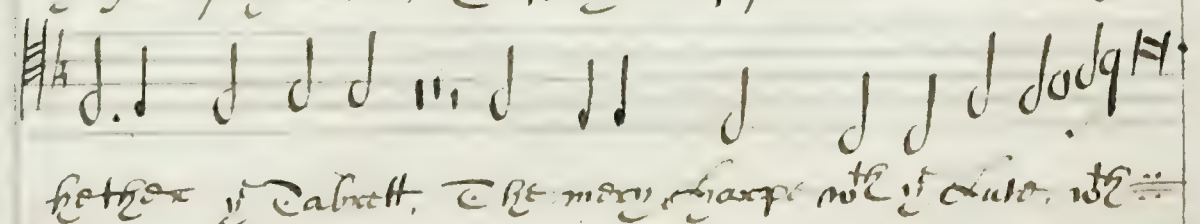 hether yͤ Tabrett, The mery harpe wᵗʰ yͤ Lute, wᵗʰ